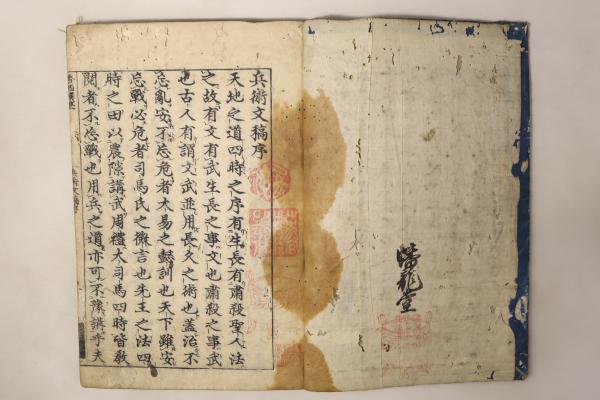 兵術文稿序
天地之道四時之序有生長有肅殺聖人法
之故有文有武生長之事文也肅殺之事武
也古人有謂文武並用長久之術也蓋治不
忘亂安不忘危者太易之懿訓也天下雖安
忘戰必危者司馬氏之微言也先王之法四
時之田以農隙講武周禮大司馬四時皆教
閱者不忘戰也用兵之道亦可不豫講乎夫